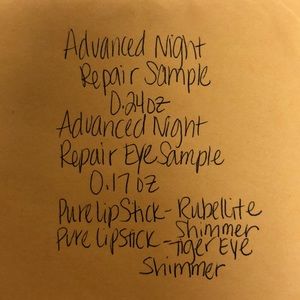 Advanced Night
Repair Sample
0.24oz
Advanced Night
Repair Eye Sample
0.17oz
Pure Lip Stick - Rubellite
Shimmer
Pure Lipstick - Tiger Eye
Shimmer